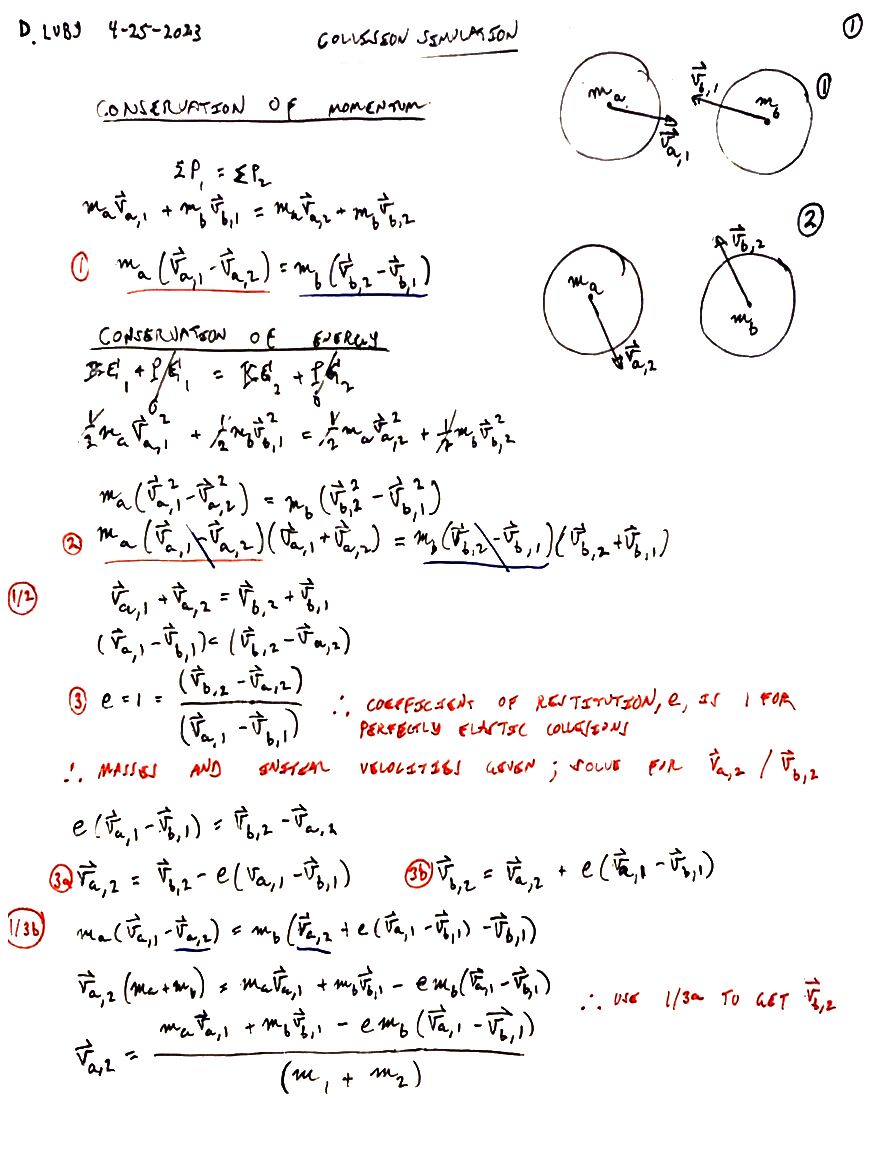 D. LUBY 4-25-2023
COLLISION SIMULATION
①
CONSERVATION OF MOMENTUM
m_a
v⃗_a,1
v⃗_b,1
m_b
①
ΣP_1 = ΣP_2
m_a v⃗_a,1 + m_b v⃗_b,1 = m_a v⃗_a,2 + m_b v⃗_b,2
① m_a (v⃗_a,1 - v⃗_a,2) = m_b (v⃗_b,2 - v⃗_b,1)
②
m_a
v⃗_a,2
v⃗_b,2
m_b
CONSERVATION OF ENERGY
KE_1 + PE_1 = KE_2 + PE_2
0 0
1/2 m_a v⃗_a,1² + 1/2 m_b v⃗_b,1² = 1/2 m_a v⃗_a,2² + 1/2 m_b v⃗_b,2²
m_a (v⃗_a,1² - v⃗_a,2²) = m_b (v⃗_b,2² - v⃗_b,1²)
② m_a (v⃗_a,1 - v⃗_a,2)(v⃗_a,1 + v⃗_a,2) = m_b (v⃗_b,2 - v⃗_b,1)(v⃗_b,2 + v⃗_b,1)
1/2 v⃗_a,1 + v⃗_a,2 = v⃗_b,2 + v⃗_b,1
(v⃗_a,1 - v⃗_b,1) = (v⃗_b,2 - v⃗_a,2)
③ e = 1 = (v⃗_b,2 - v⃗_a,2) / (v⃗_a,1 - v⃗_b,1) ∴ COEFFICIENT OF RESTITUTION, e, IS 1 FOR
PERFECTLY ELASTIC COLLISIONS
∴ MASSES AND INITIAL VELOCITIES GIVEN; SOLVE FOR v⃗_a,2 / v⃗_b,2
e (v⃗_a,1 - v⃗_b,1) = v⃗_b,2 - v⃗_a,2
3a v⃗_a,2 = v⃗_b,2 - e (v_a,1 - v⃗_b,1) 3b v⃗_b,2 = v⃗_a,2 + e (v⃗_a,1 - v⃗_b,1)
1/3b m_a (v⃗_a,1 - v⃗_a,2) = m_b (v⃗_a,2 + e (v⃗_a,1 - v⃗_b,1) - v⃗_b,1)
v⃗_a,2 (m_a + m_b) = m_a v⃗_a,1 + m_b v⃗_b,1 - e m_b (v⃗_a,1 - v⃗_b,1) ∴ USE 1/3a TO GET v⃗_b,2
v⃗_a,2 = m_a v⃗_a,1 + m_b v⃗_b,1 - e m_b (v⃗_a,1 - v⃗_b,1) / (m_1 + m_2)